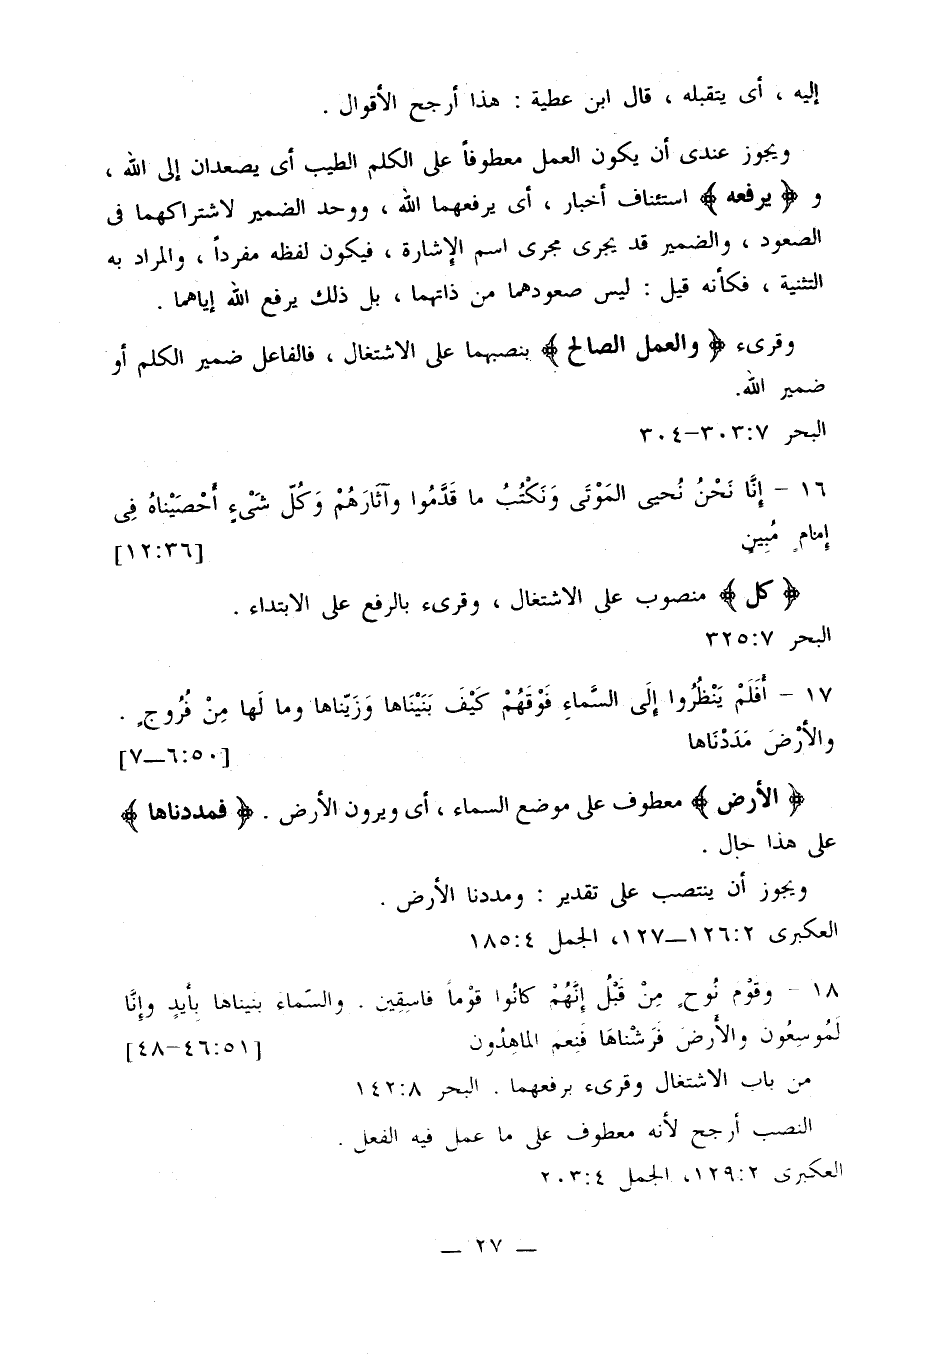 إليه ، أى يتقبله ، قال ابن عطية : هذا أرجح الأقوال .
ويجوز عندى أن يكون العمل معطوفاً على الكلم الطيب أى يصعدان إلى الله ،
و ﴿ يرفعه ﴾ استئناف أخبار ، أى يرفعهما الله ، ووحد الضمير لاشتراكهما فى
الصعود ، والضمير قد يجرى مجرى اسم الإشارة ، فيكون لفظه مفرداً ، والمراد به
التثنية ، فكأنه قيل : ليس صعودهما من ذاتهما ، بل ذلك يرفع الله إياهما .
وقرىء ﴿ والعمل الصالح ﴾ بنصبهما على الاشتغال ، فالفاعل ضمير الكلم أو
ضمير الله.
البحر ٣٠٣:٧–٣٠٤
١٦ – إِنَّا نَحْنُ نُحيى المَوْتَى وَنَكْتُبُ ما قَدَّمُوا وآثَارَهُمْ وَكُلّ شَىْءٍ أَحْصَيْنَاهُ فِى
إِمَامٍ مُبِينٍ [١٢:٣٦]
﴿ كل ﴾ منصوب على الاشتغال ، وقرىء بالرفع على الابتداء .
البحر ٣٢٥:٧
١٧ – أَفَلَمْ يَنْظُرُوا إِلَى السَّماءِ فَوْقَهُمْ كَيْفَ بَنَيْنَاها وَزَيّناها وما لَها مِنْ فُرُوجٍ .
والأرْضَ مَدَدْنَاها [٦:٥٠–٧]
﴿ الأرض ﴾ معطوف على موضع السماء ، أى ويرون الأرض . ﴿ فمددناها ﴾
على هذا حال .
ويجوز أن ينتصب على تقدير : ومددنا الأرض .
العكبرى ١٢٦:٢–١٢٧، الجمل ١٨٥:٤
١٨ – وقوْم نُوحٍ مِنْ قَبْلُ إِنَّهُمْ كانُوا قوْماً فاسِقِين . والسّماء بنيناها بِأَيدٍ وإِنَّا
لَمُوسِعُون والأَرضَ فَرَشْناهَا فَنِعم الماهِدُون [٤٦:٥١–٤٨]
من باب الاشتغال وقرىء برفعهما . البحر ١٤٢:٨
النصب أرجح لأنه معطوف على ما عمل فيه الفعل .
العكبرى ١٢٩:٢، الجمل ٢٠٣:٤
– ٢٧ –